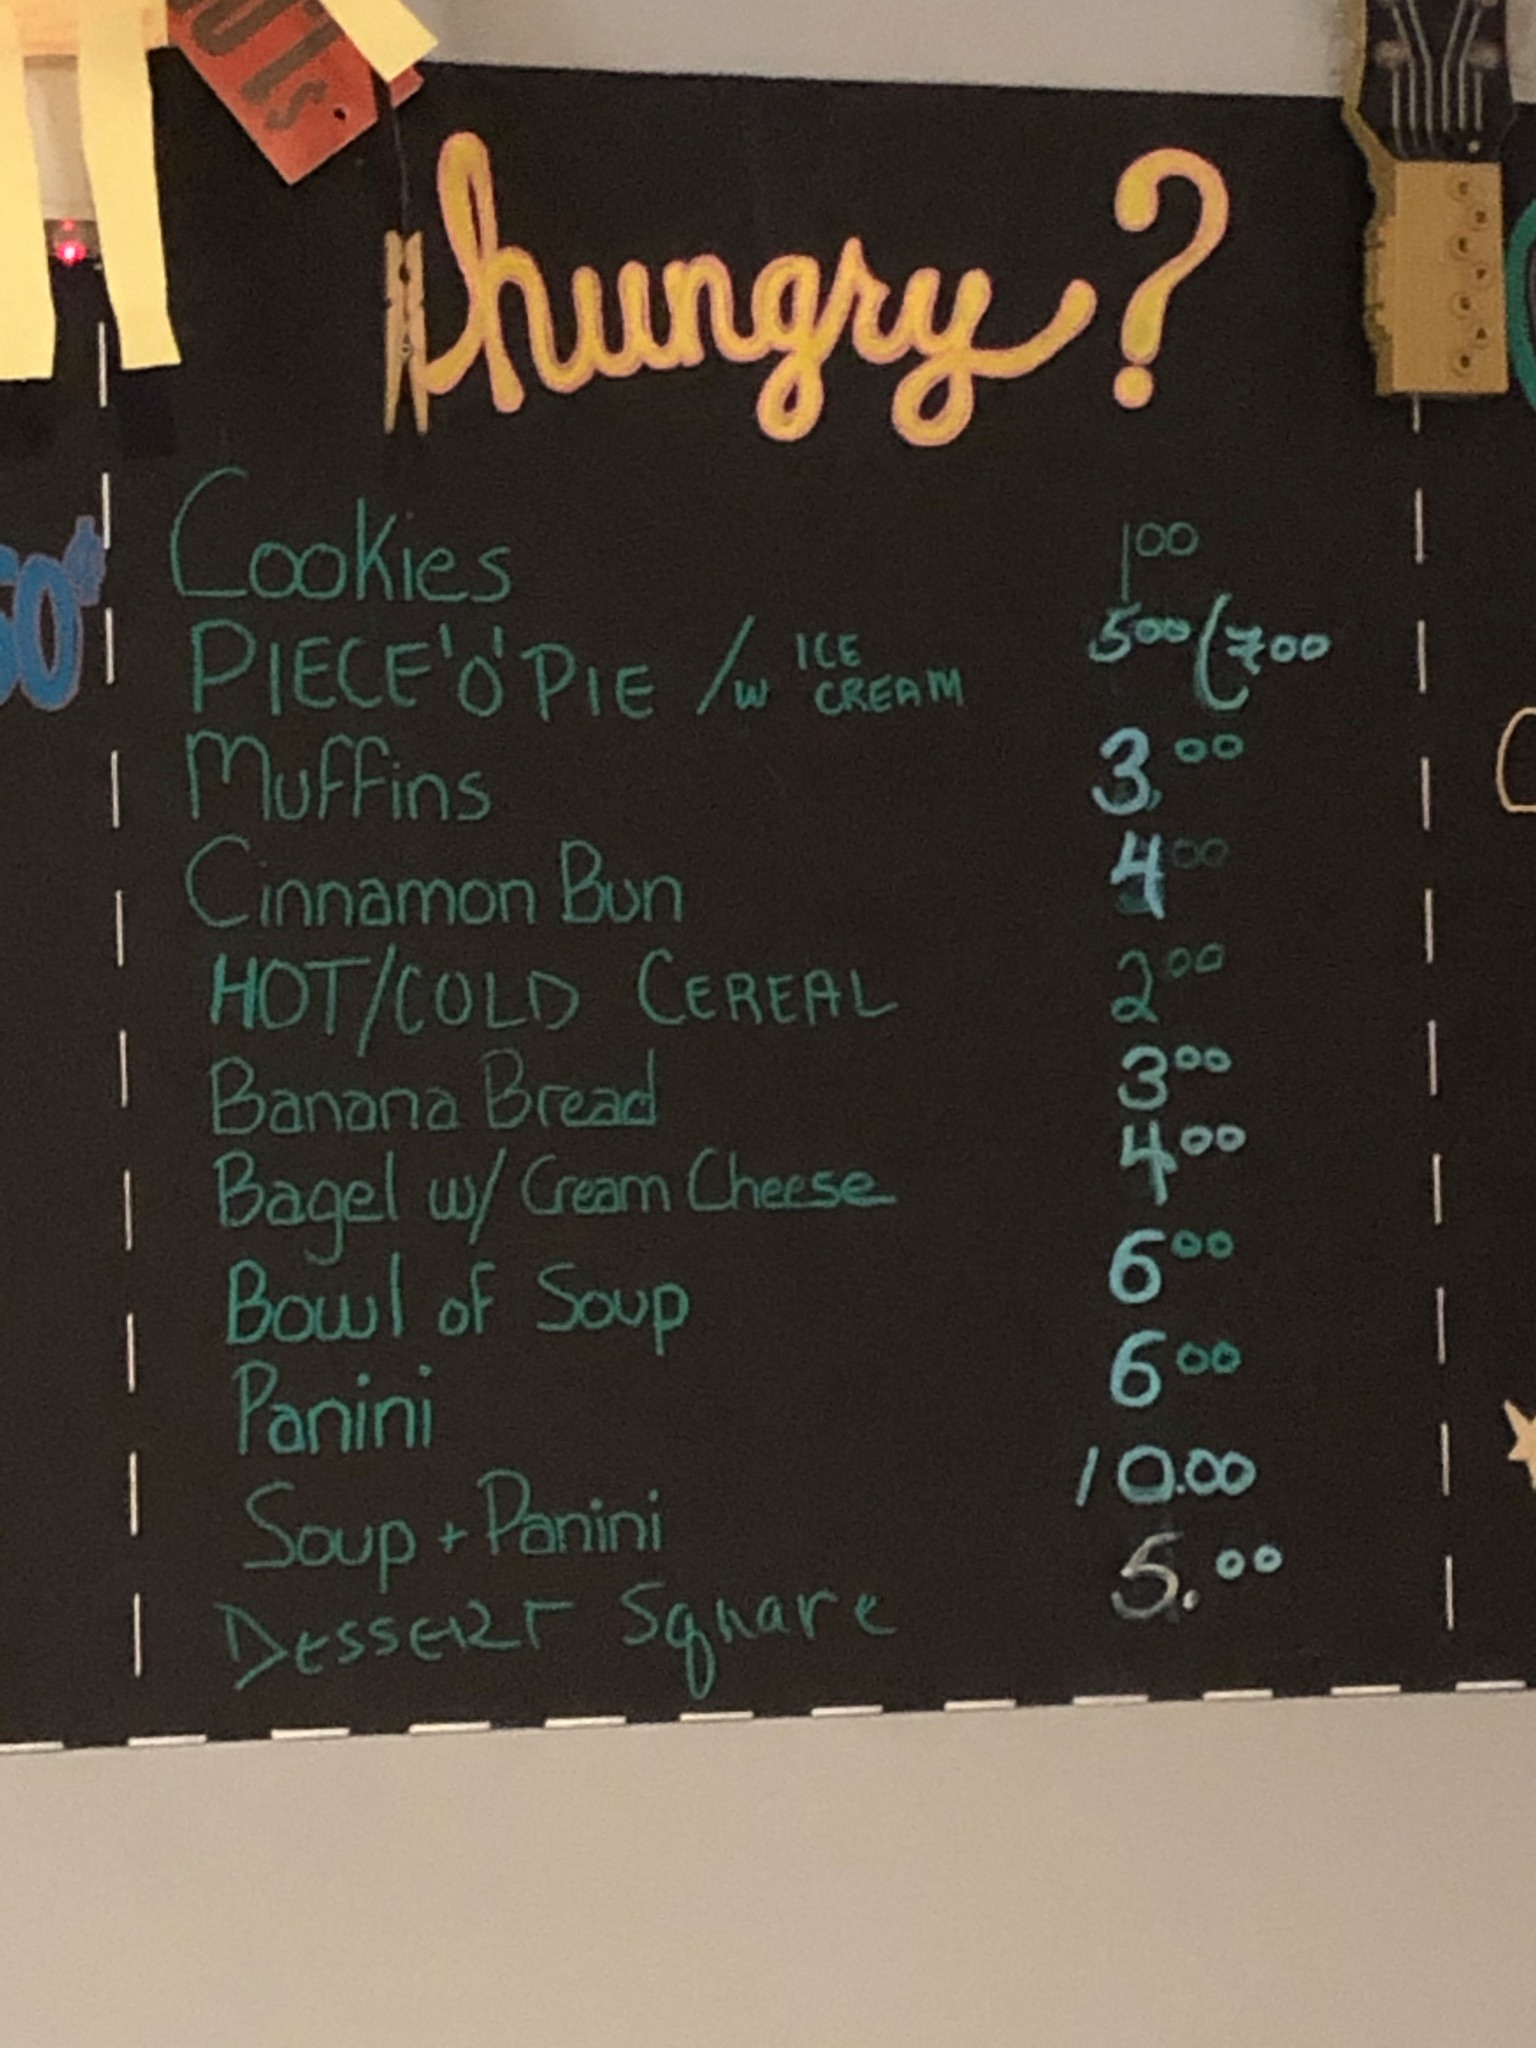 hungry?
Cookies 1 00
PIECE 'O' PIE / w ICE CREAM 5 00 / 7 00
Muffins 3. 00
Cinnamon Bun 4 00
HOT/COLD CEREAL 2 00
Banana Bread 3 00
Bagel w/ Cream Cheese 4 00
Bowl of Soup 6 00
Panini 6 00
Soup + Panini 10.00
DESSERT Square 5. 00